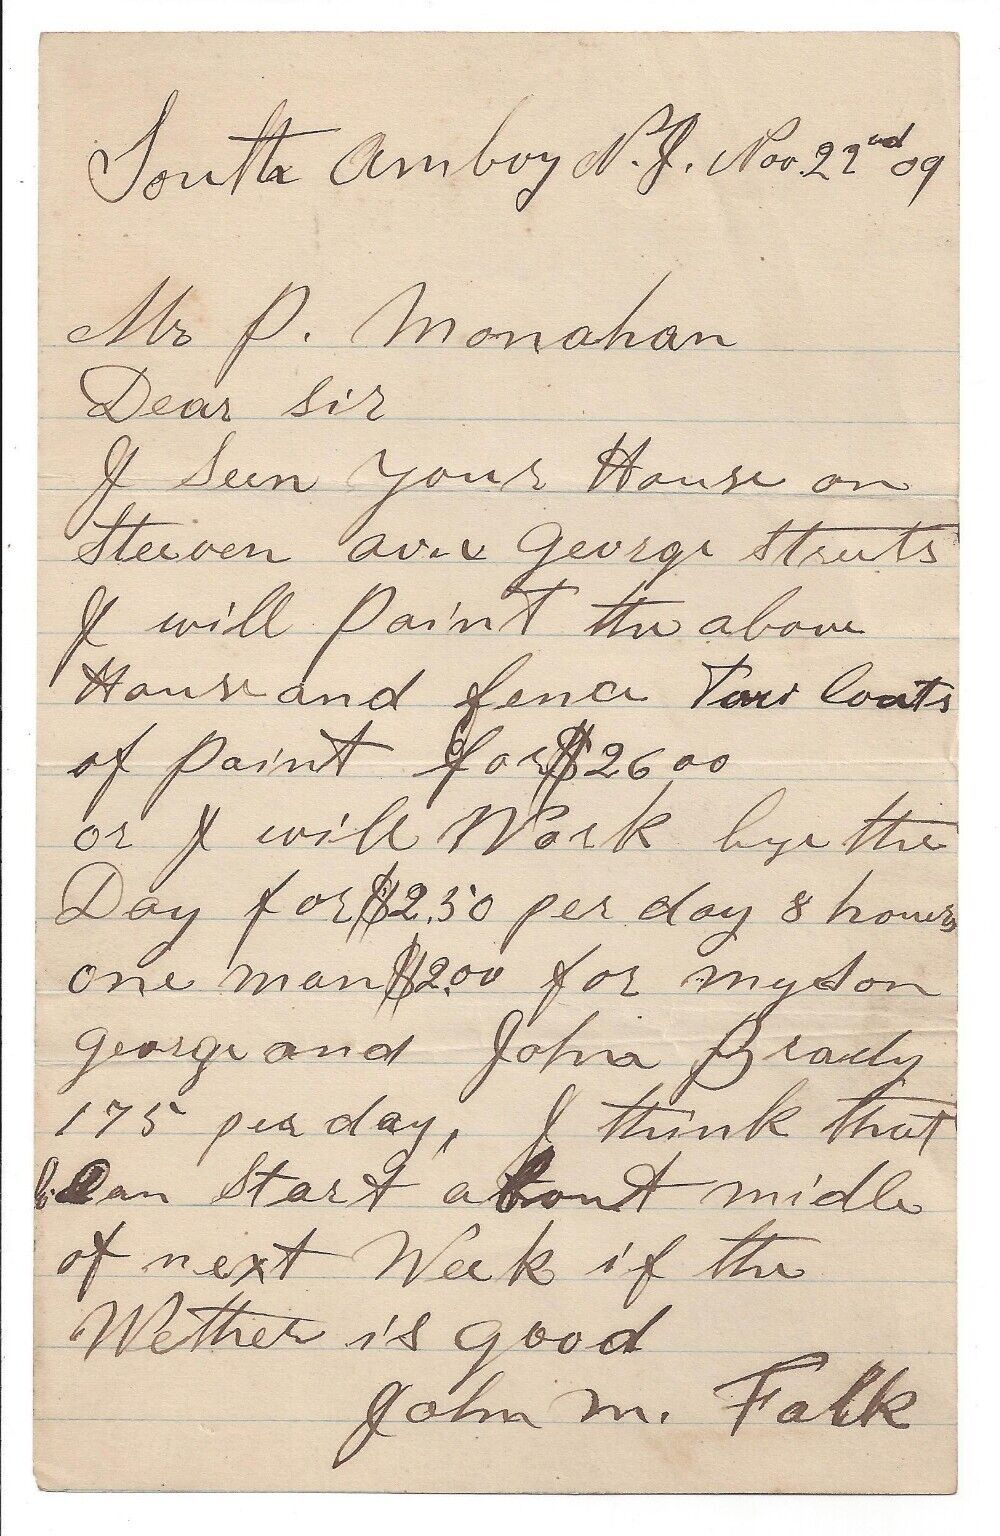 South Amboy N.J. Nov. 22nd 09
Mr P. Monahan
Dear Sir
I Seen Your House on
Steeven ave George Streets
I will Paint the above
House and fence Two Coats
of Paint for $26 00
or I will Work bye the
Day for $2.50 per day 8 hours
one man $2.00 for my Son
George and John Brady
175 per day, I think that
Can Start about midle
of next Week if the
Wether is good
John M. Falk